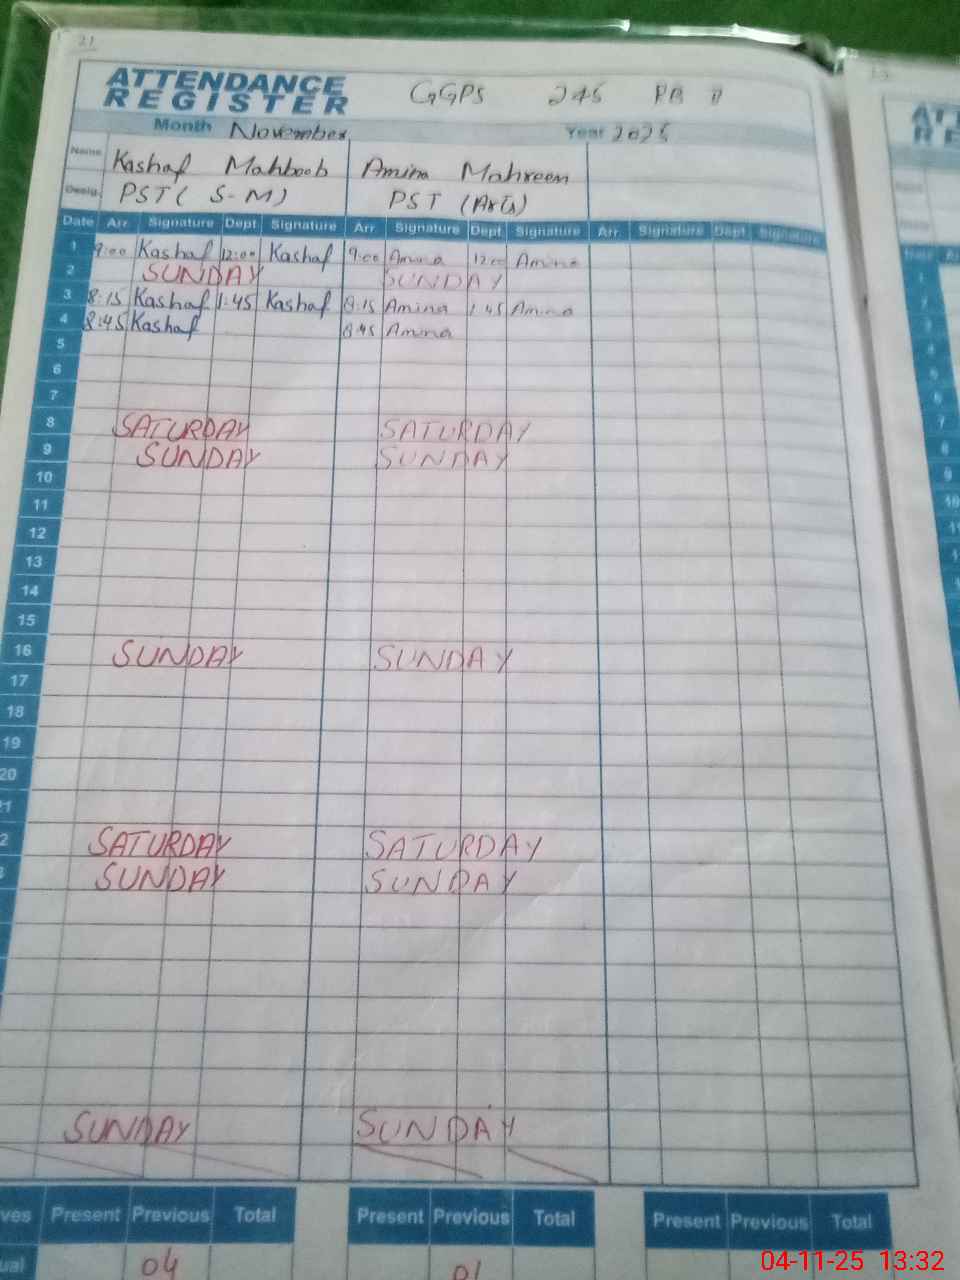 21
ATTENDANCE REGISTER GGPS 245 RB
Month November Year 2025
Name Kashaf Mahboob Amina Mahreem
Desig. PST (S-M) PST (Arts)
Date Arr. Signature Dept Signature Arr. Signature Dept. Signature Arr. Signature Dept. Signature
1 9:00 Kashaf 12:00 Kashaf 9:00 Amina 12:00 Amina
2 SUNDAY SUNDAY
3 8:15 Kashaf 1:45 Kashaf 8:15 Amina 1:45 Amina
4 8:45 Kashaf 8:45 Amina
5
6
7
8 SATURDAY SATURDAY
9 SUNDAY SUNDAY
10
11
12
13
14
15
16 SUNDAY SUNDAY
17
18
19
20
21
2 SATURDAY SATURDAY
SUNDAY SUNDAY
SUNDAY SUNDAY
ves Present Previous Total Present Previous Total Present Previous Total
ual 04 01
04-11-25 13:32